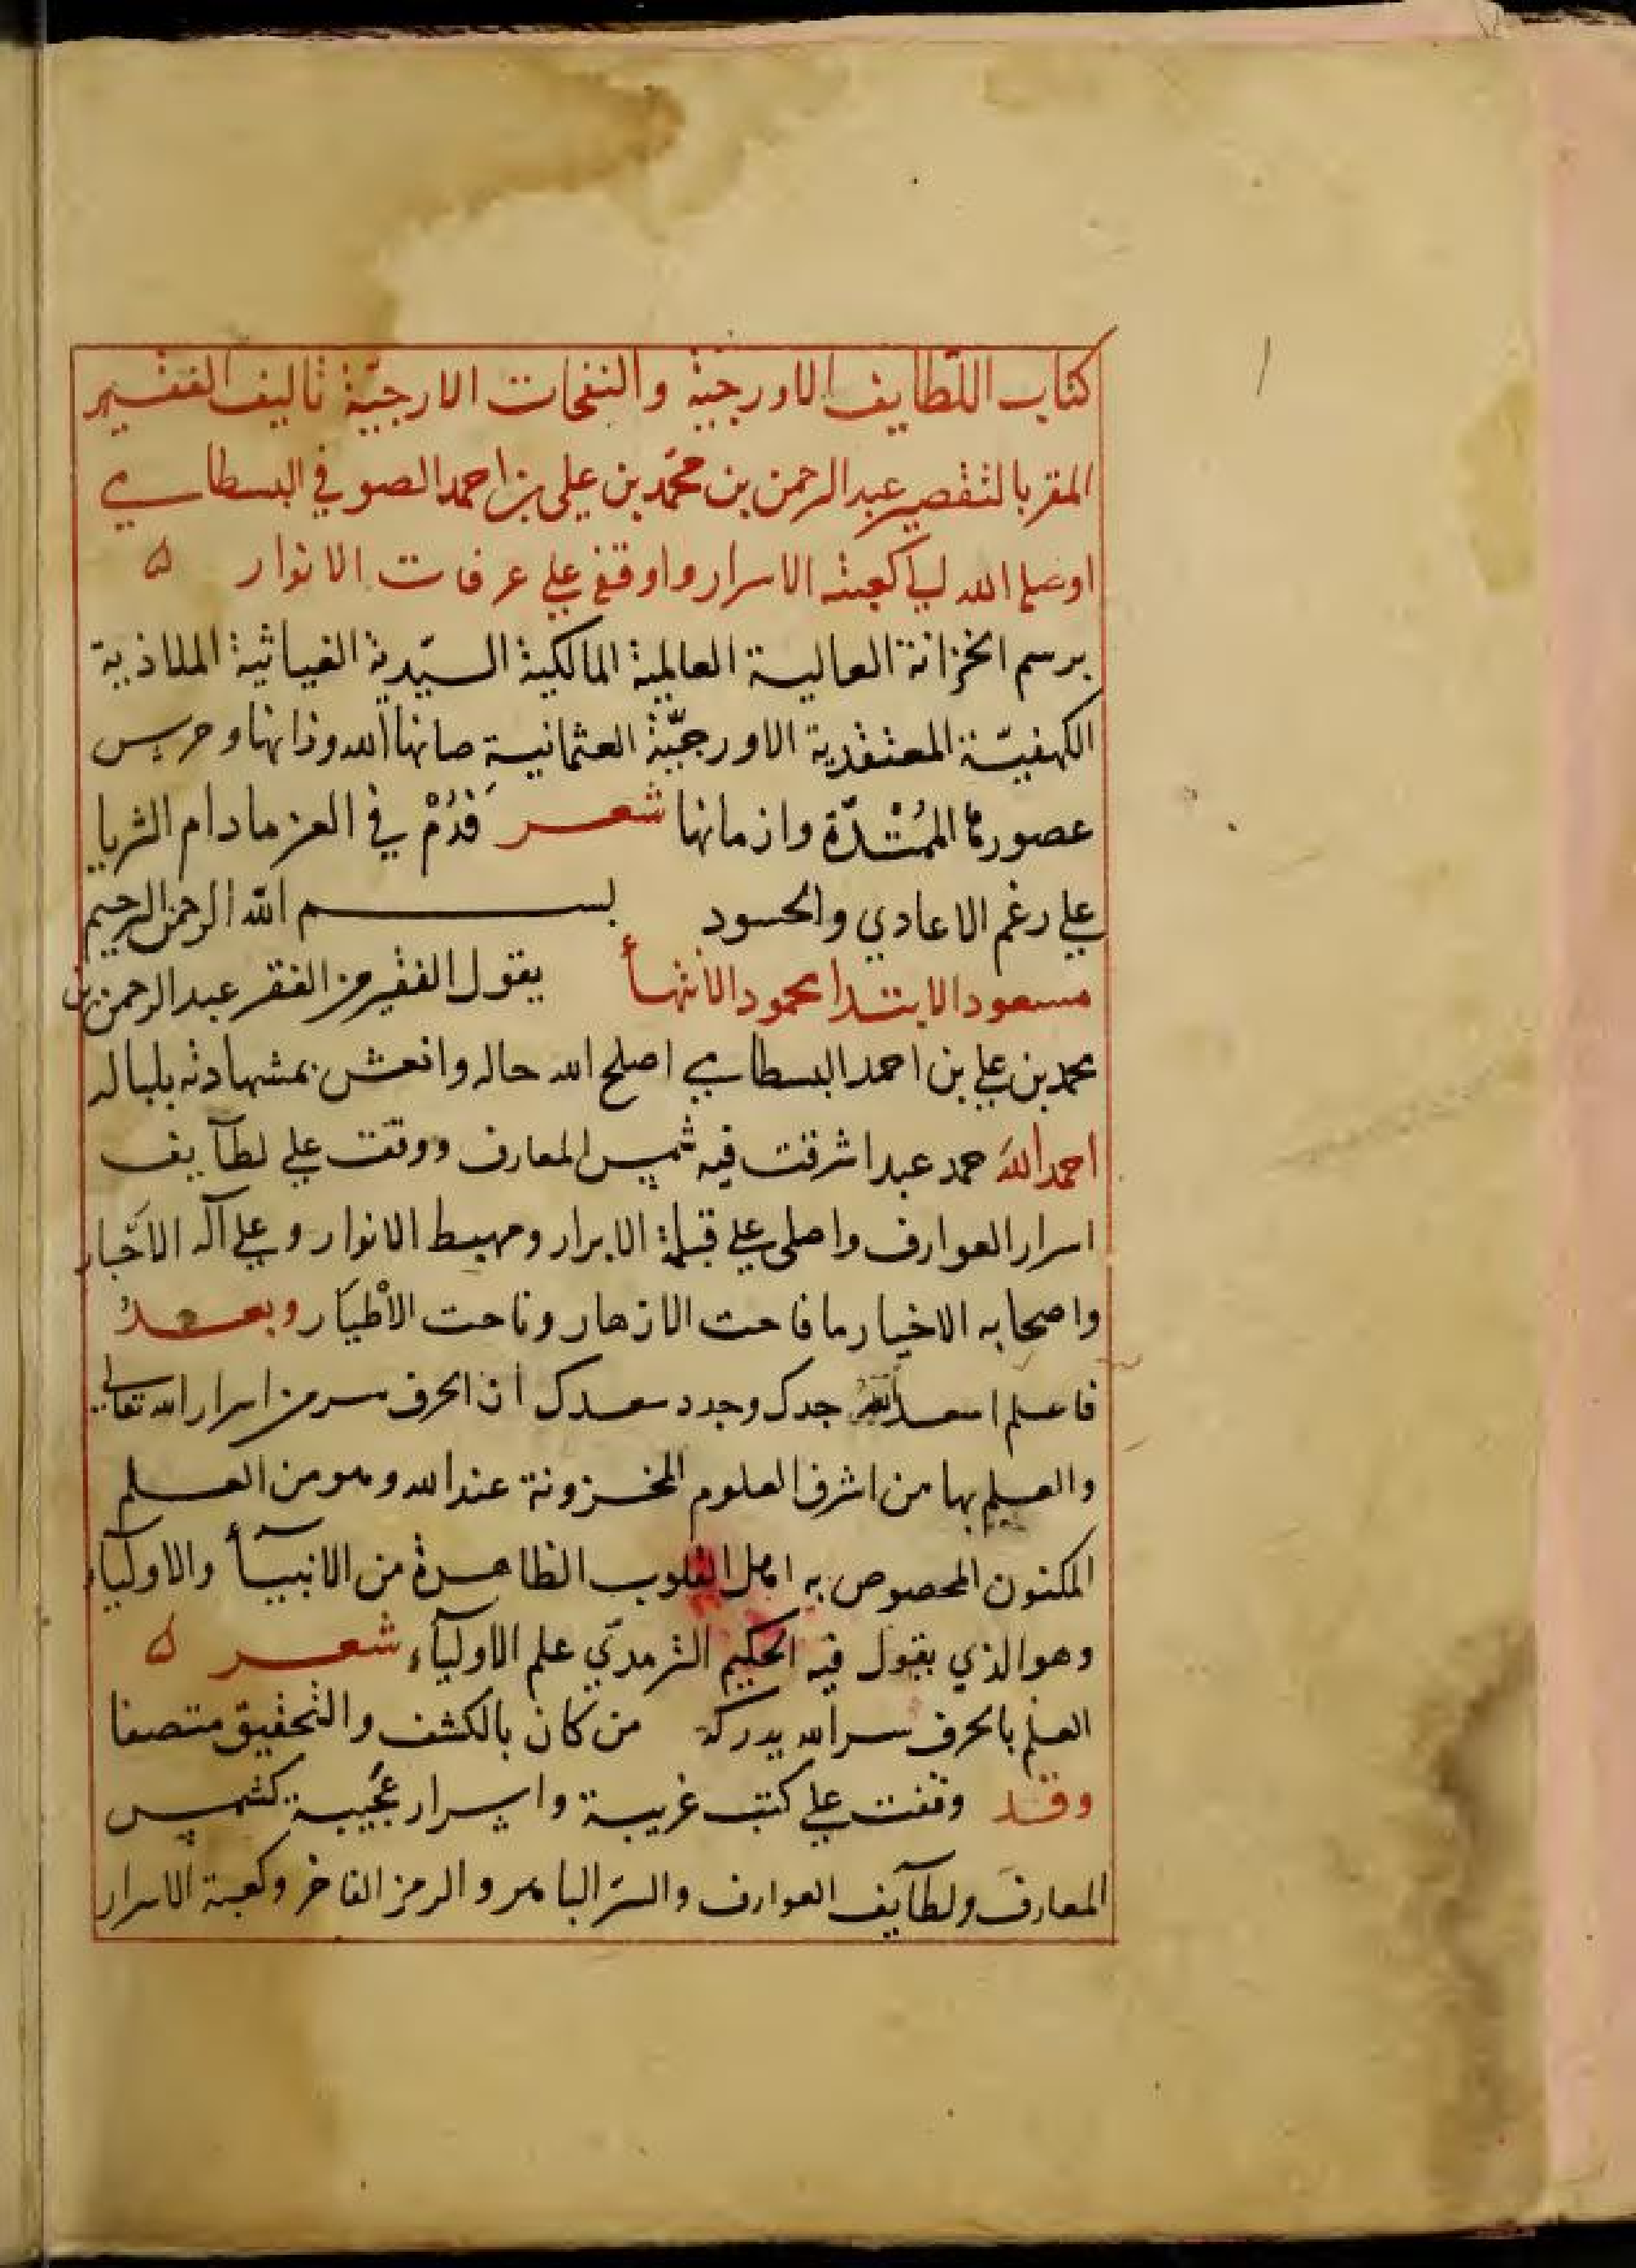 كتاب اللطايف الاورجية والنفحات الارجية تاليف الفقير
المقر بالتقصير عبد الرحمن بن محمد بن علي بن احمد الصوفي البسطامي
اوصله الله الي كعبة الاسرار واوقفه علي عرفات الانوار ه
برسم الخزانة العالية العالمية المالكية السيدية الغياثية الملاذية
الكهفية المعتقدية الاورجية العثمانية صانها الله وذاتها وحرس
عصورها الممتدة وازمانها شعر فدم في العز مادام الثريا
علي رغم الاعادي والحسود بسم الله الرحمن الرحيم
مسعود الابتدا محمود الانتهأ يقول الفقير من الفقر عبد الرحمن بن
محمد بن علي بن احمد البسطامي اصلح الله حاله وانعش بمشهادته بلباله
احمد الله حمد عبد اشرقت فيه شمس المعارف ووقفت علي لطآيف
اسرار العوارف واصلي علي قبلة الابرار ومهبط الانوار وعلي آله الاحبار
واصحابه الاخيار ما فاحت الازهار وناحت الاطيار وبعد
فاعلم اسعد الله جدك وجدد سعدك ان الحرف سر من اسرار الله تعالي
والعلم بها من اشرف العلوم المخزونة عند الله وهو من العلم
المكنون المخصوص به اهل القلوب الطاهرة من الانبيآ والاوليآء
وهو الذي يقول فيه الحكيم الترمدي علم الاوليآء شعر ه
العلم بالحرف سر الله يدركه من كان بالكشف والتحقيق متصفا
وقد وقفت علي كتب غريبة واسرار عجيبة كشمس
المعارف ولطآيف العوارف والسر الباهر والرمز الفاخر وكعبة الاسرار